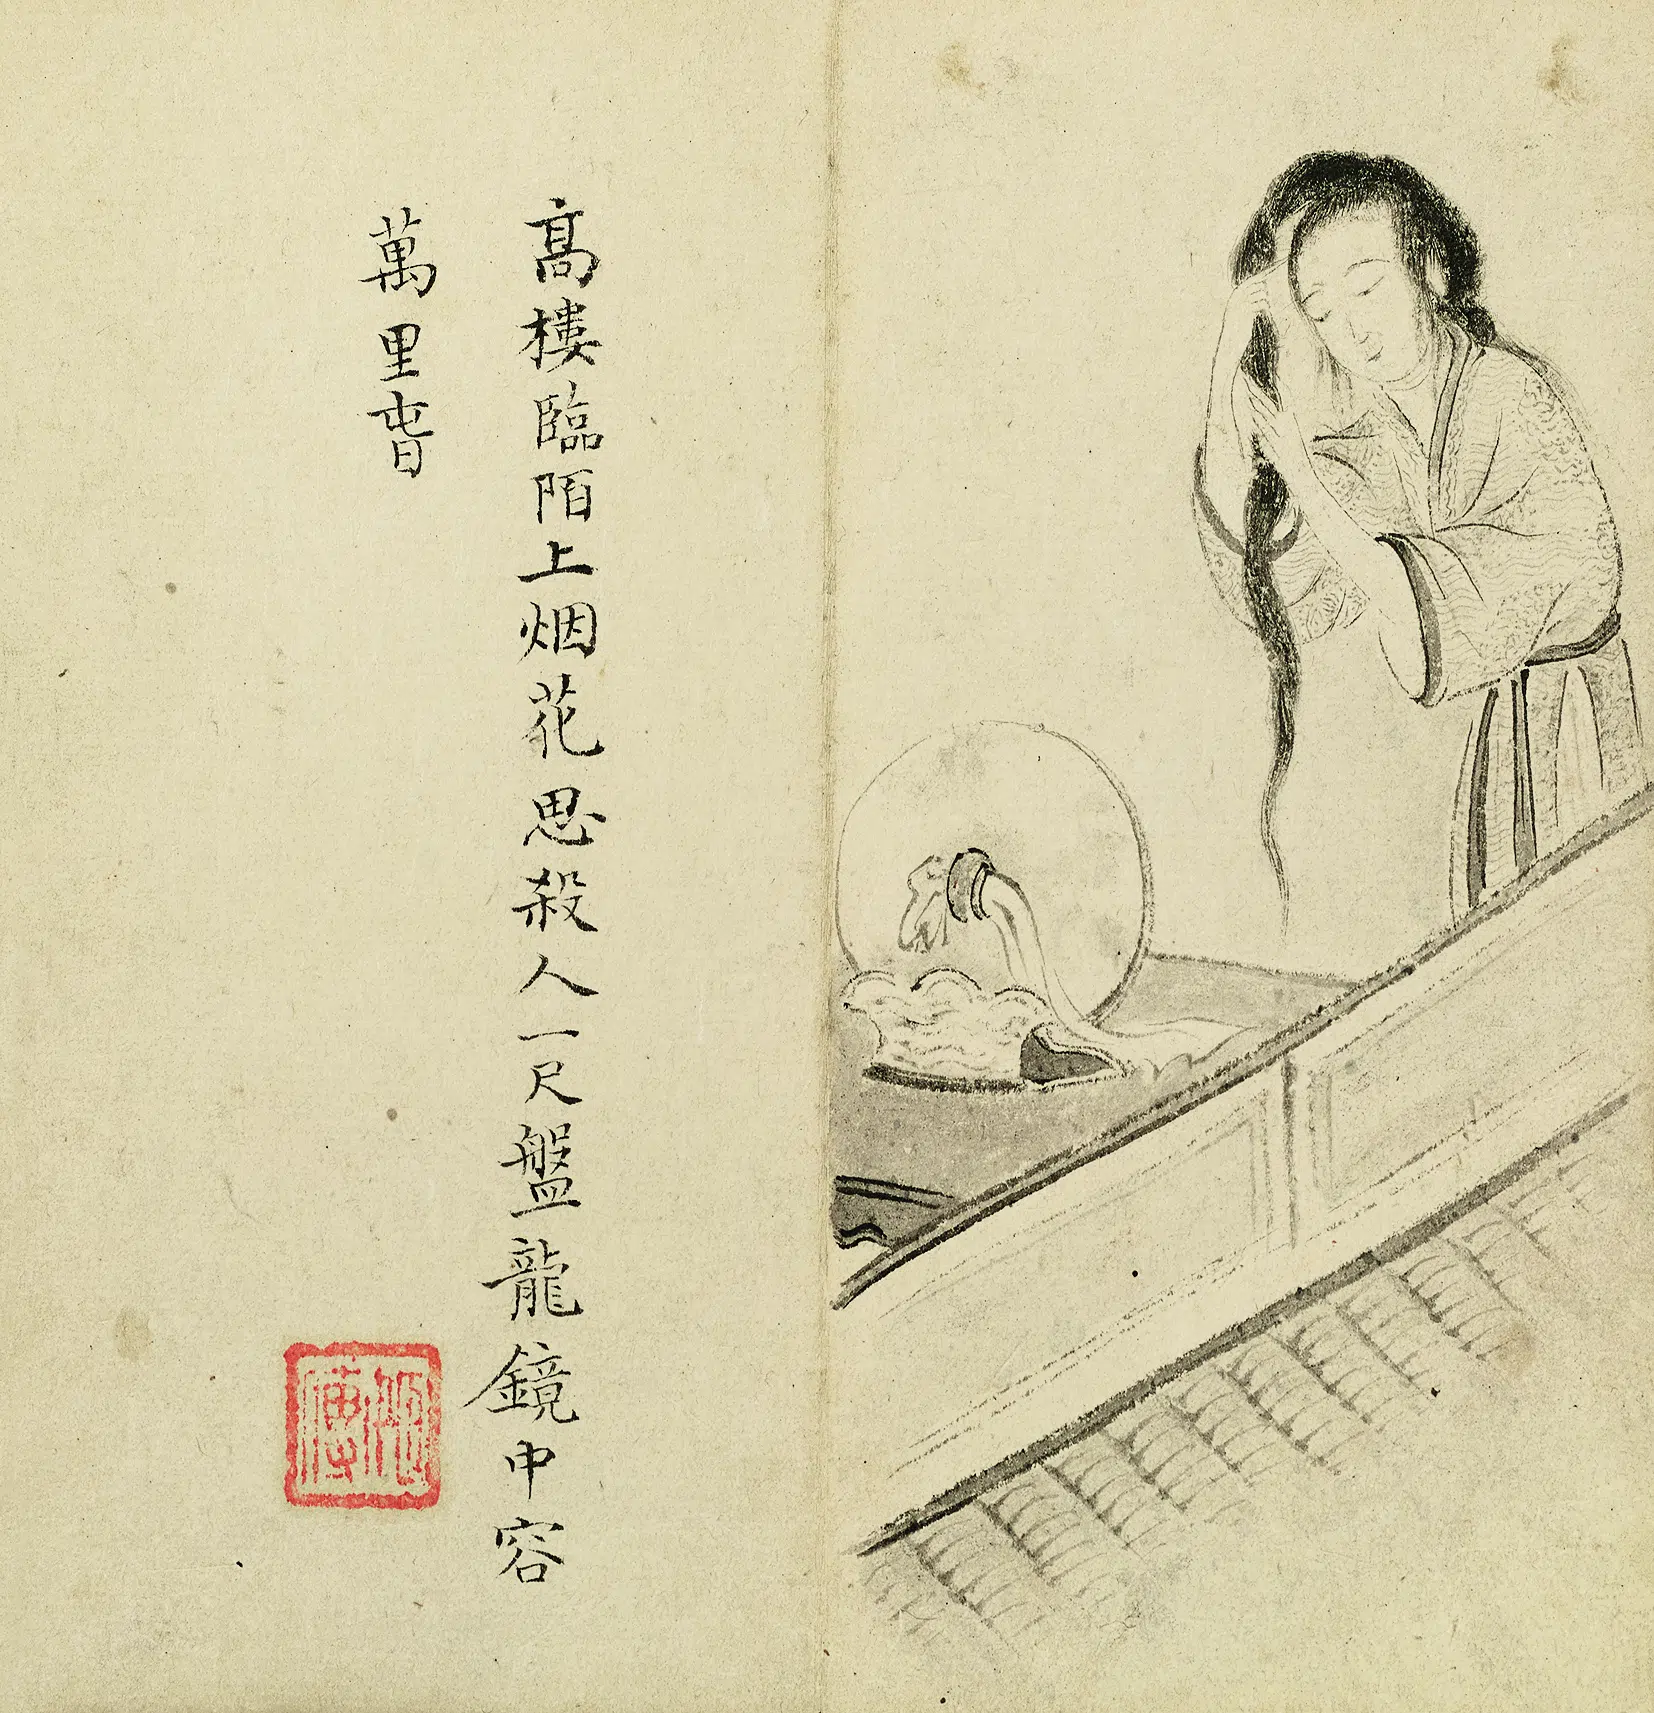 髙樓臨陌上烟花思殺人一尺盤龍鏡中容
萬里旾